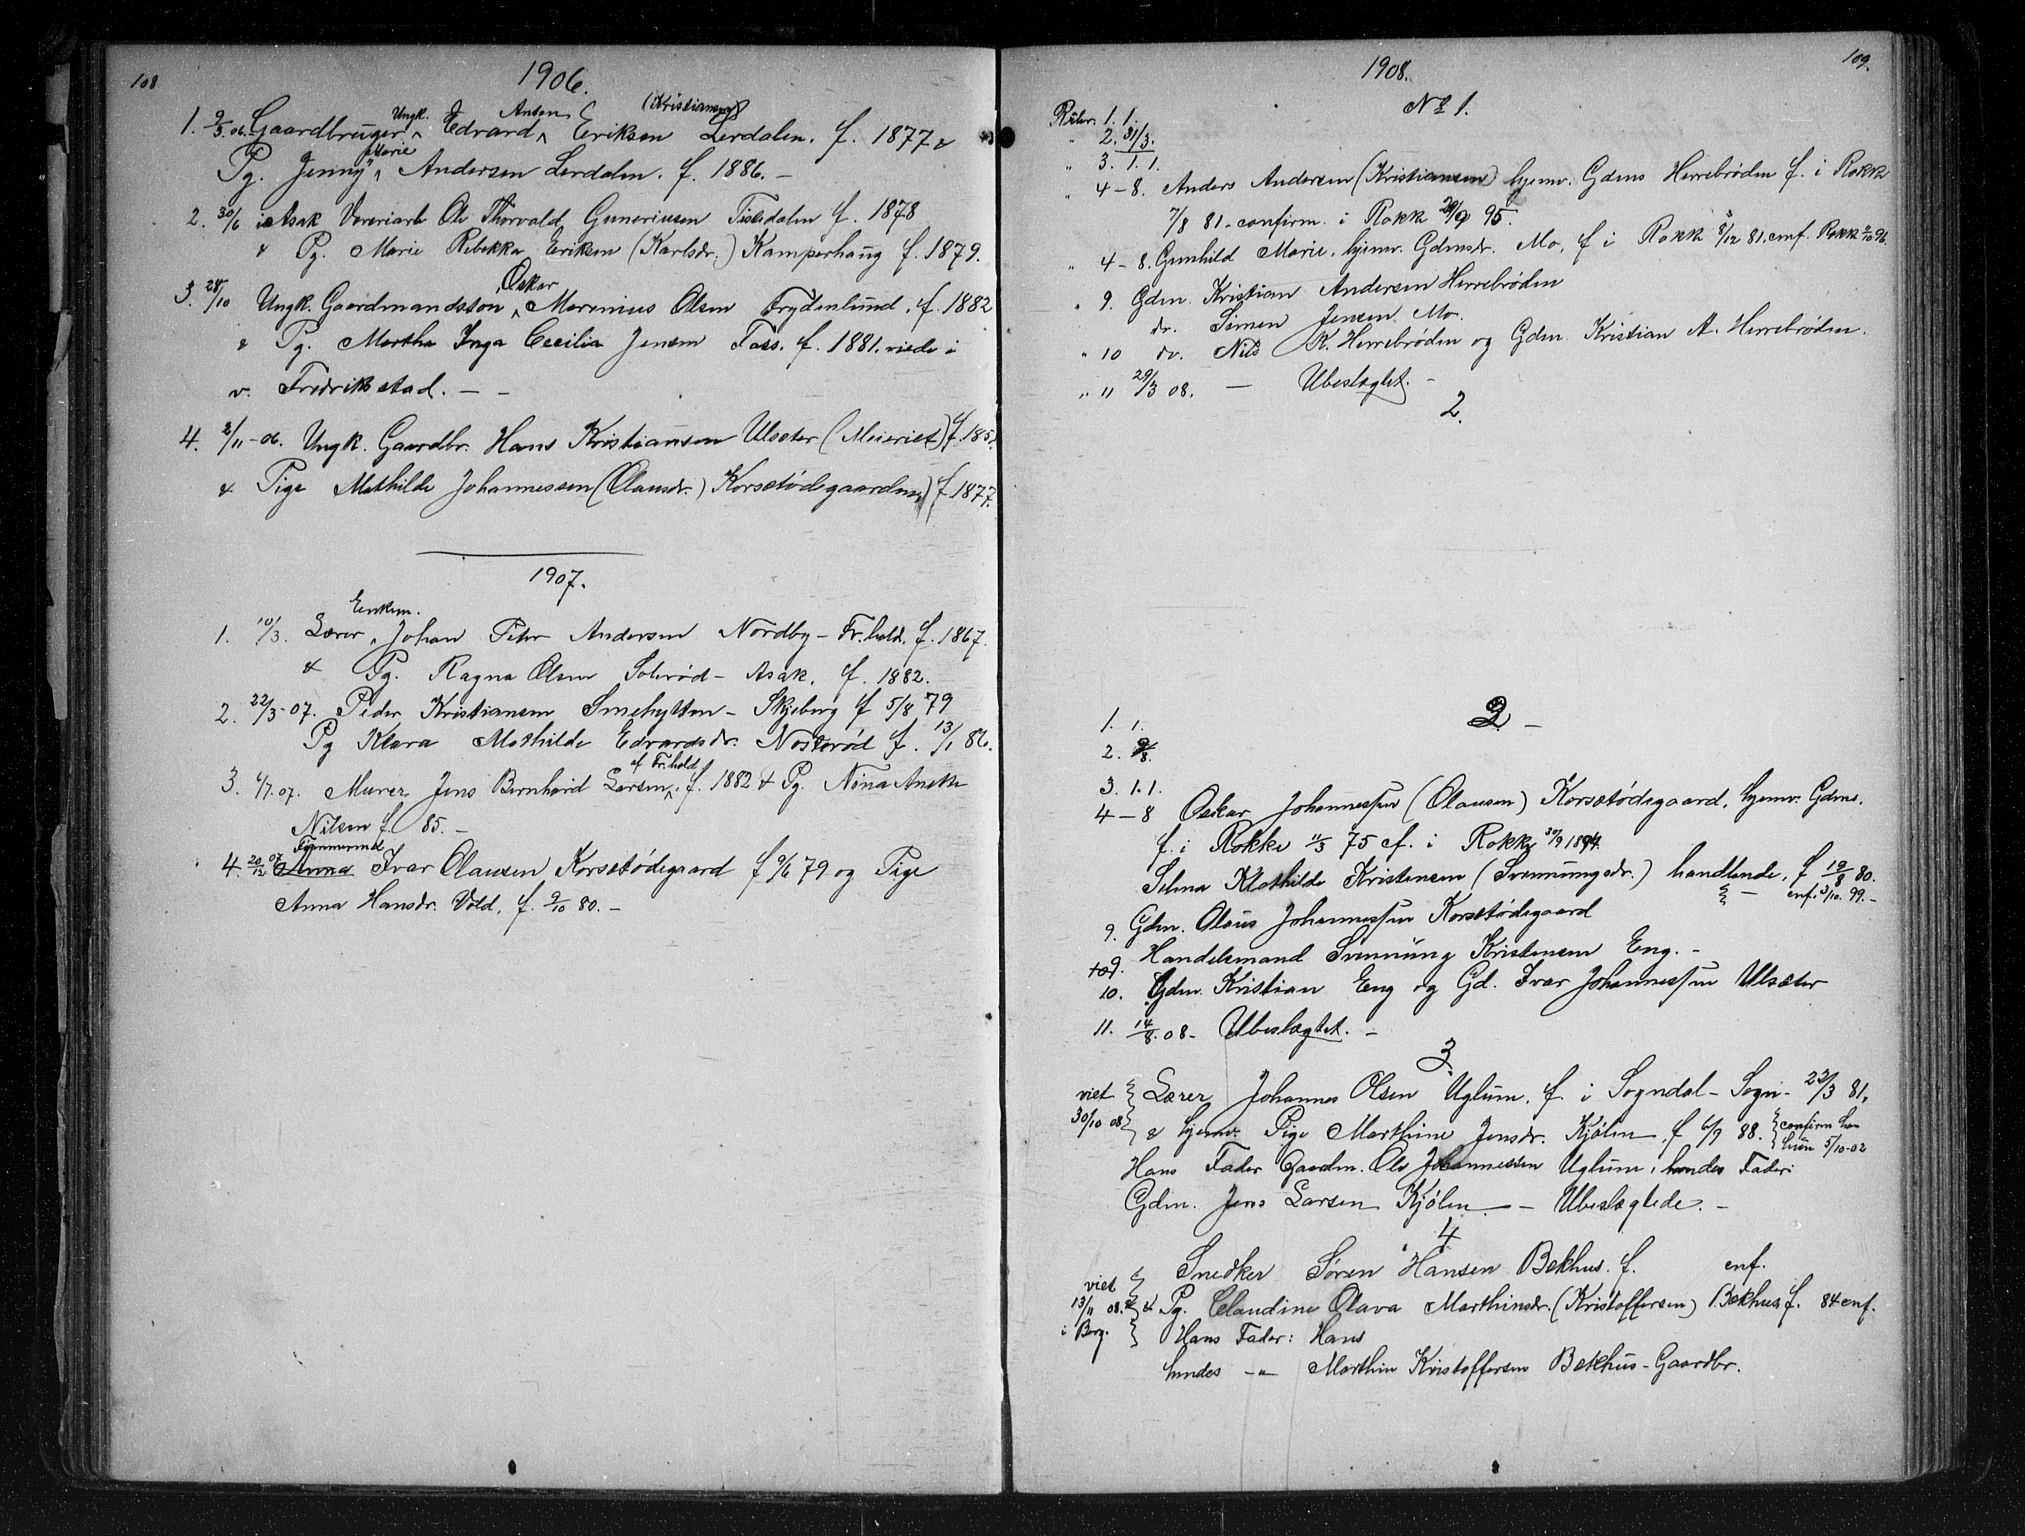 108
1906.
1. 9/3 06. Gaardbruger Ungk. Edvard Anton Eriksen (Kristiansen) Lerdalen. f. 1877 &
Pg. Jenny Marie Andersen Lerdalen. f. 1886. –
2. 30/6 i Asak Ole Thorvald Guneriusen Tistedalen f. 1878
& Pg. Marie Rebekka Eriksen (Karlsdr.) Kamperhaug f. 1879.
3. 28/10 Ungk. Gaardmandssøn Oskar Marenius Olsen Frydenlund. f. 1882
& Pg. Marthe Inga Cecilia Jensen Foss. f. 1881. viede i
v. Fredrikstad. – –
4. 2/11 – 06. Ungk. Gaardbr. Hans Kristiansen Ulsæter (Meieriet) f. 185
& Pige Mathilde Johannessen (Olausdr.) Korsetødegaarden f. 1877.
1907.
1. 10/3. Lærer Enkem. Johan Peter Andersen Nordby – Fr.hald. f. 1867.
& Pg. Ragna Olsen Solerød – Asak. f. 1882.
2. 22/3 – 07. Peder Kristiansen Smehytten – Skjeberg f 5/8 79
Pg Klara Mathilde Edvardsdr. Nosterød f. 13/1 86.
3. 6/7. 07. Murer Jens Bernhard Larsen af Fr.hald. f. 1882 & Pg. Nina Anette
Nilsen f. 85. –
4. 20/12 07 Anna Tømmermd Ivar Olausen Korsetødegaard f 9/6 79 og Pige
Anna Hansdr. Vold. f. 9/10 80. –
109.
1908.
No 1.
Rubr. 1. 1.
" 2. 31/3.
" 3. 1. 1.
" 4 – 8. Anders Andersen (Kristiansen) hjemv. Gdms Herrebrøden f. i Rokke
7/8 81 – confirm. i Rokk 29/9 95.
" 4 – 8. Gunhild Marie, hjemv. Gdmsdr. Mo, f i Rokk 8/12 81. cnf. Rokk 2/10 96.
" 9. Gdm. Kristian Andersen Herrebrøden
do. Simen Jensen Mo.
" 10 do. Nils K. Herrebrøden og Gdm. Kristian A. Herrebrøden.
" 11 29/3 08. – Ubeslægtet. –
2.
2 –
1. 1.
2. 9/8.
3. 1. 1.
4 – 8 Oskar Johannessen (Olausen) Korsetødegaard, hjemv. Gdms.
f. i Rokke 11/3 75 cf. i Rokke 30/9 1894.
Selma Klothilde Kristensen (Svenningsdr.) handlende, f 19/8 80.
– cnf. 3/10. 99. –
9. Gdm. Olaus Johannessen Korsetødegaard
9. Handelsmand Svenning Kristensen Eng. –
10. Gdm. Kristian Eng og Gd. Ivar Johannessen Ulsæter
11. 14/8. 08 – Ubeslægtet. –
3.
viet Lærer Johannes Olsen Uglum. f. i Sogndal – Sogn – 23/3 81,
30/10 08 & hjemv. Pige Marthine Jensdr. Kjølen f 6/9 88. confirm han
hun 5/10-02
Hans Fader Gaardm. Ole Johannessen Uglum, hendes Fader:
Gdm. Jens Larsen Kjølen – Ubeslægtede. –
4
Snedker Søren Hansen Bekhus. f. cnf.
viet
13/11 08. & Pg. Claudine Olava Marthinsdr. (Kristoffersen) Bekhus f. 84 cnf.
i Berg. Hans Fader: Hans
hendes –"– Marthin Kristoffersen Bekhus – Gaardbr.